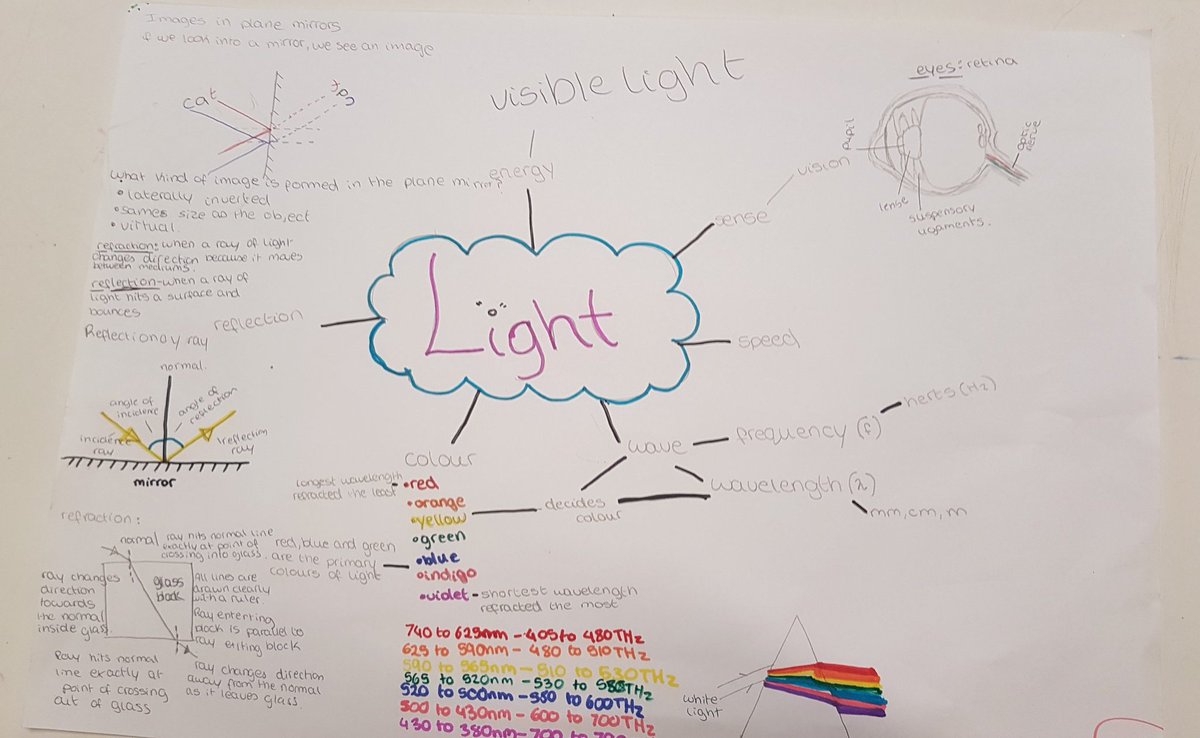 Images in plane mirrors
if we look into a mirror, we see an image
cat
cat
What kind of image is formed in the plane mirror?
• laterally inverted
• sames size as the object
• virtual.
refraction: when a ray of light
changes direction because it moves
between mediums.
reflection - when a ray of
light hits a surface and
bounces
Reflection of ray
normal.
angle of
incidence
angle of
reflection
incidence
ray
reflection
ray
mirror
refraction:
normal
ray hits normal line
exactly at point of
crossing into glass.
ray changes
direction
towards
the normal
inside glass
glass
block
All lines are
drawn clearly
with a ruler
Ray enterring
block is parallel to
ray exiting block
Ray hits normal
line exactly at
point of crossing
out of glass
ray changes direction
away from the normal
as it leaves glass
visible light
energy
Light
reflection
sense
vision
eyes: retina
pupil
lense
suspensory
ligaments.
optic
nerve
speed
wave
frequency (f)
herts (Hz)
wavelength (λ)
mm, cm, m
decides
colour
colour
longest wavelength -
refracted the least
• red
• orange
• yellow
• green
• blue
• indigo
• violet - shortest wavelength
refracted the most
red, blue and green
are the primary
colours of light
740 to 625nm - 405 to 480THz
625 to 590nm - 480 to 510THz
590 to 565nm - 510 to 530THz
565 to 520nm - 530 to 580THz
520 to 500nm - 580 to 600THz
500 to 430nm - 600 to 700THz
430 to 380nm - 700 to
white
light